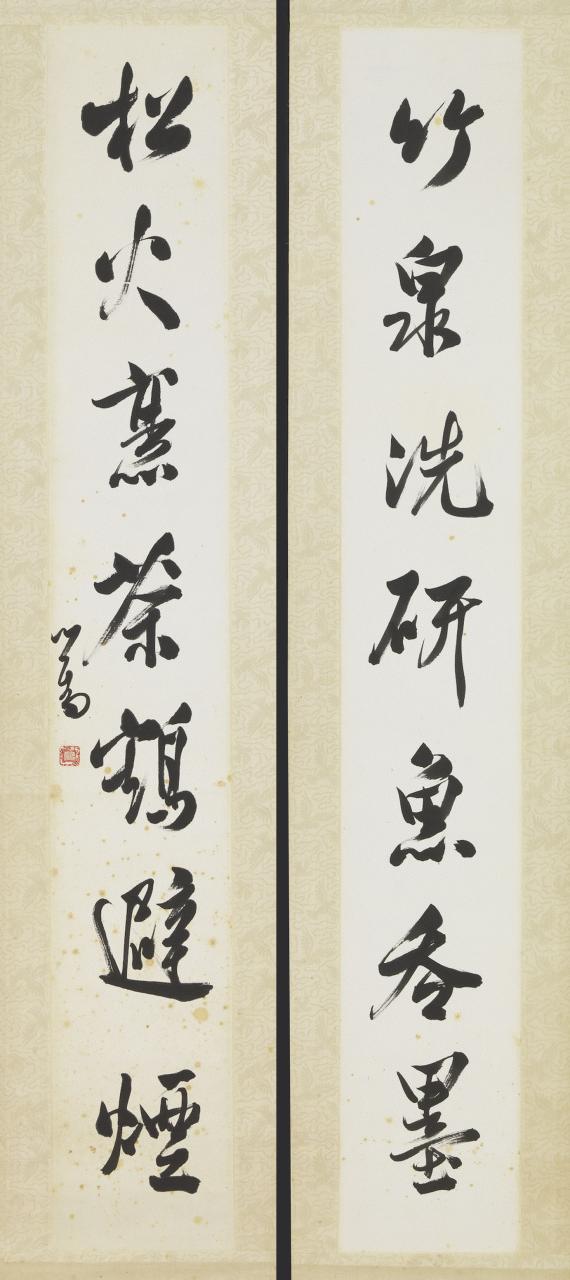 竹泉洗研魚吞墨
松火烹茶鶴避煙
心畬